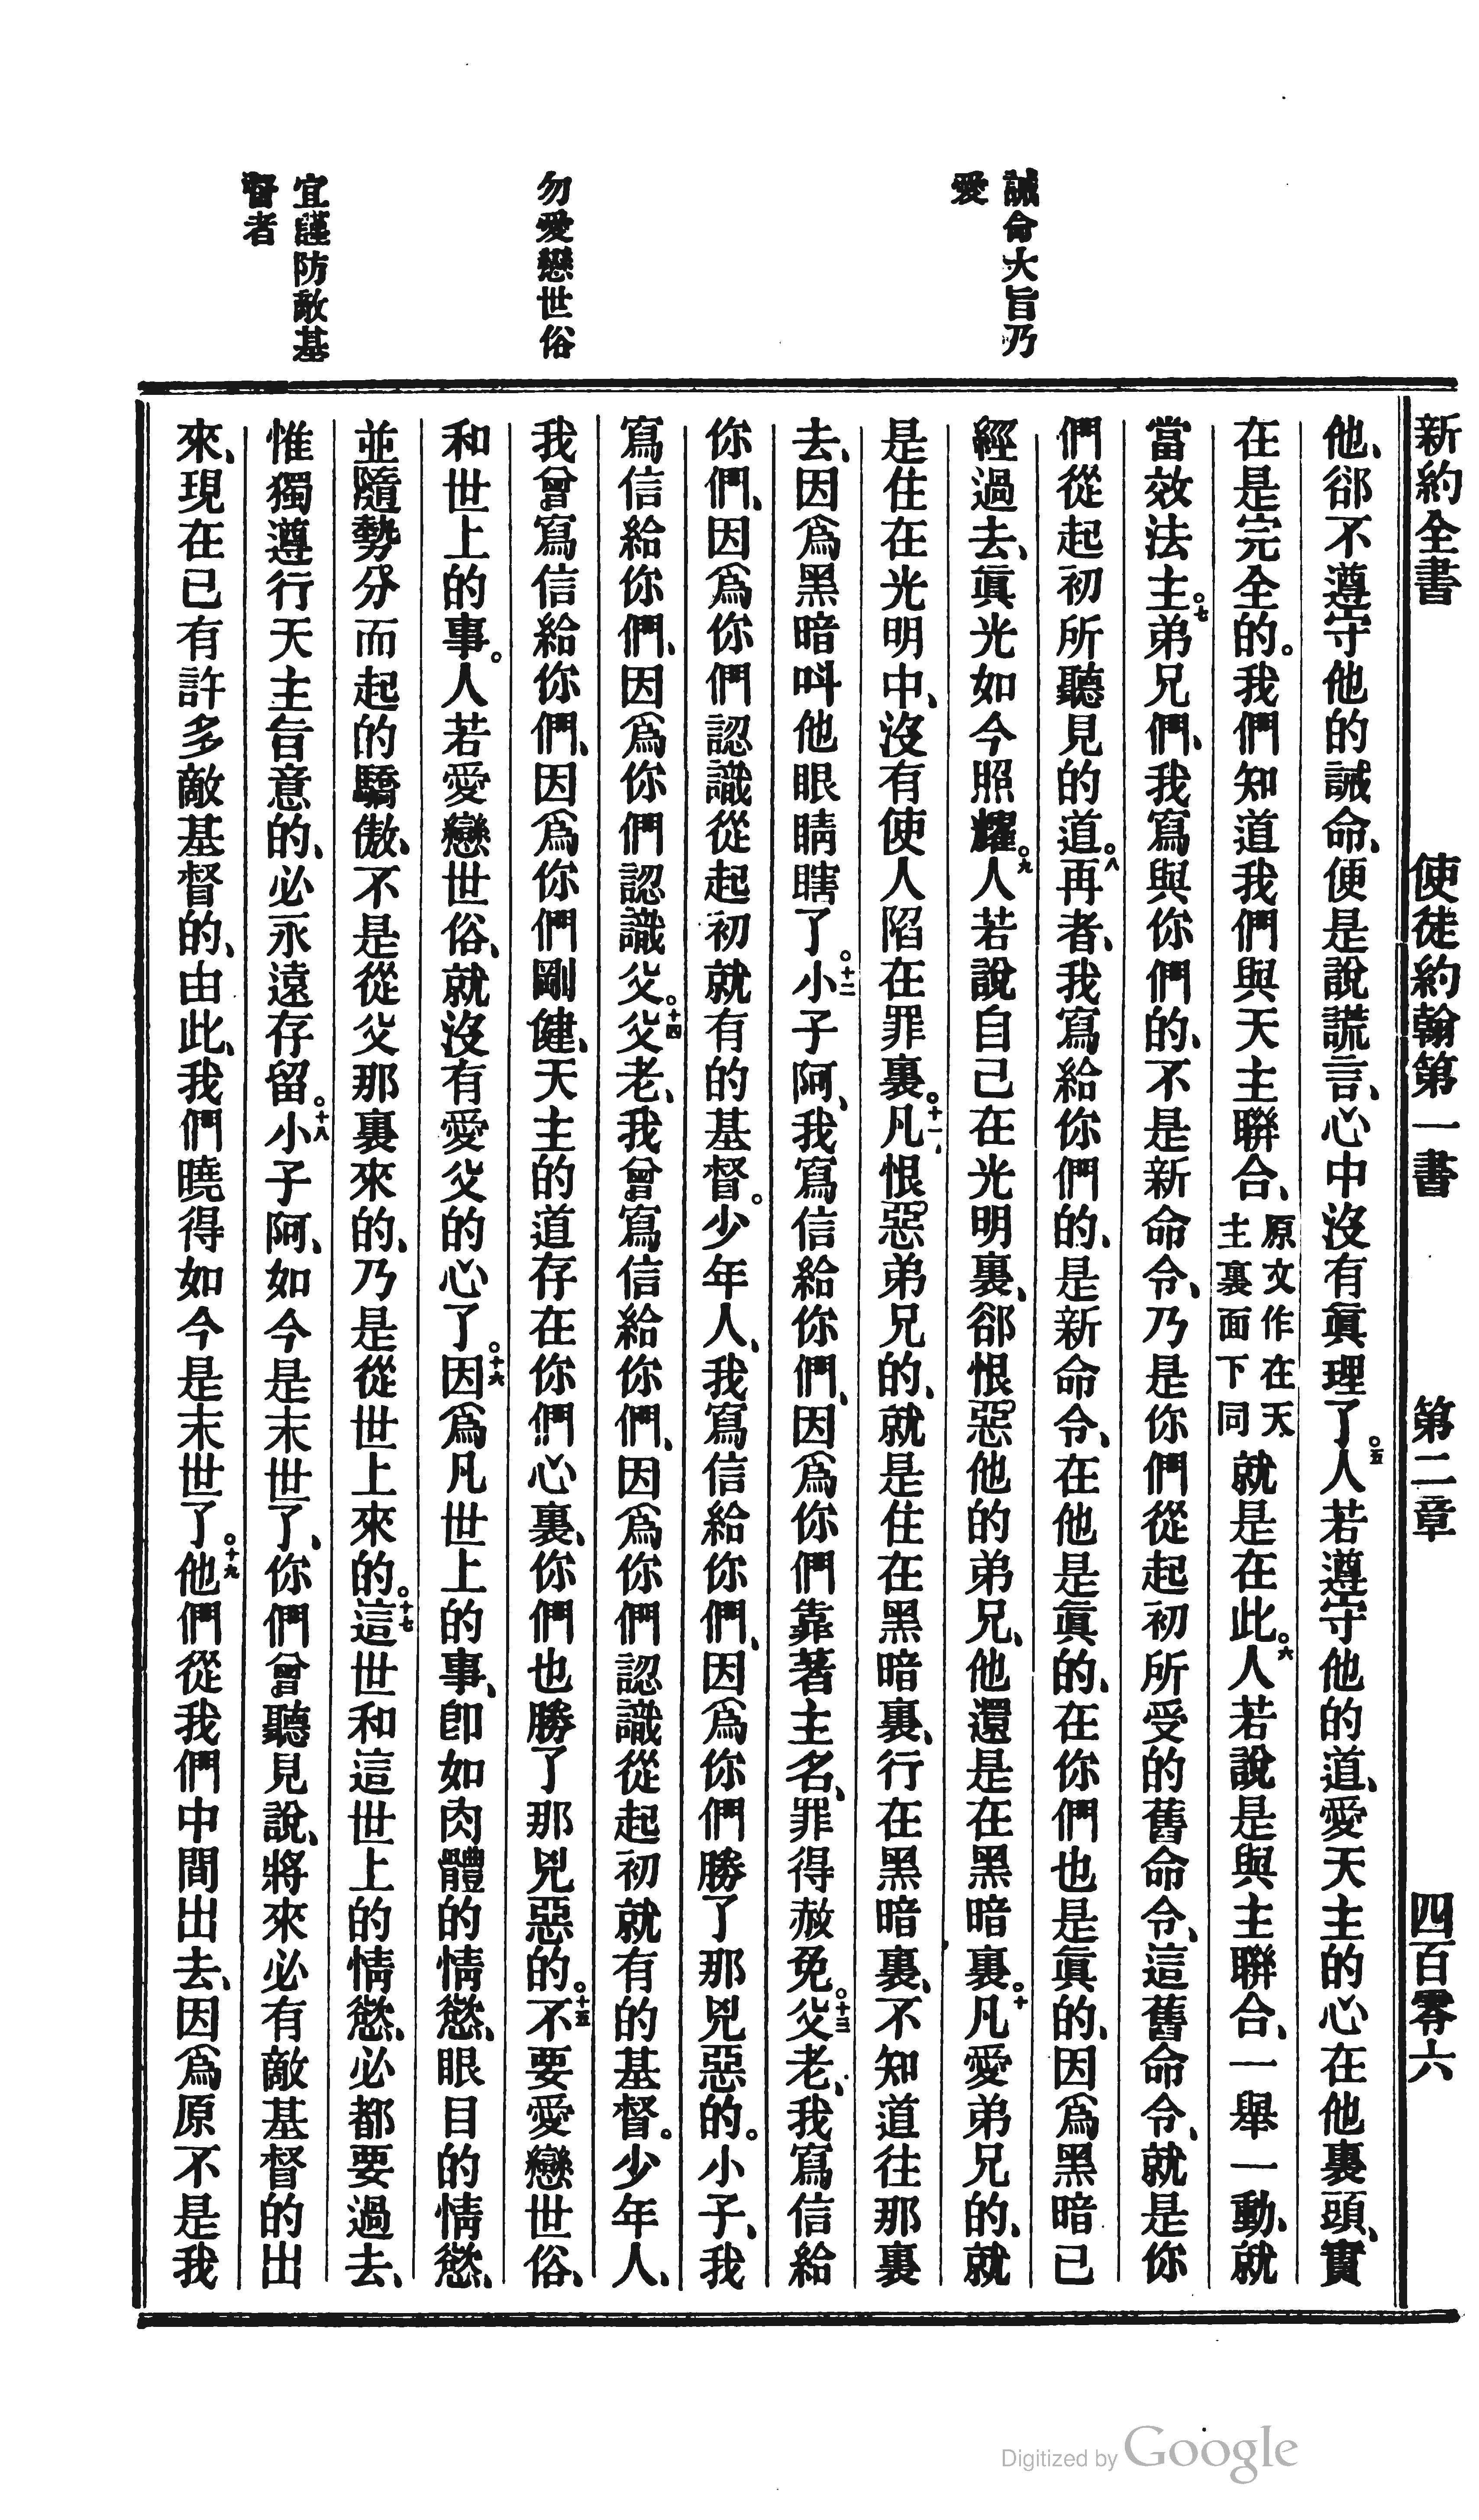 新約全書 使徒約翰第一書 第二章 四百零六
誡命大旨乃
愛
勿愛戀世俗
宜謹防敵基
督者
他、卻不遵守他的誡命、便是說謊言、心中沒有眞理了○五人若遵守他的道、愛天主的心在他裏頭、實
在是完全的。我們知道我們與天主聯合、原文作在天主裏面下同就是在此○六人若說是與主聯合、一舉一動、就
當效法主○七弟兄們、我寫與你們的、不是新命令、乃是你們從起初所受的舊命令、這舊命令、就是你
們從起初所聽見的道○八再者、我寫給你們的、是新命令、在他是眞的、在你們也是眞的、因爲黑暗已
經過去、眞光如今照耀○九人若說自己在光明裏、卻恨惡他的弟兄、他還是在黑暗裏○十凡愛弟兄的、就
是住在光明中、沒有使人陷在罪裏○十一凡恨惡弟兄的、就是住在黑暗裏、行在黑暗裏、不知道往那裏
去、因爲黑暗叫他眼睛瞎了○十二小子阿、我寫信給你們、因爲你們靠著主名、罪得赦免○十三父老、我寫信給
你們、因爲你們認識從起初就有的基督。少年人、我寫信給你們、因爲你們勝了那兇惡的。小子、我
寫信給你們、因爲你們認識父○十四父老、我曾寫信給你們、因爲你們認識從起初就有的基督。少年人、
我曾寫信給你們、因爲你們剛健、天主的道存在你們心裏、你們也勝了那兇惡的○十五不要愛戀世俗、
和世上的事。人若愛戀世俗、就沒有愛父的心了○十六因爲凡世上的事、卽如肉體的情慾、眼目的情慾、
並隨勢分而起的驕傲、不是從父那裏來的、乃是從世上來的○十七這世和這世上的情慾、必都要過去、
惟獨遵行天主旨意的、必永遠存留○十八小子阿、如今是末世了、你們曾聽見說、將來必有敵基督的出
來、現在已有許多敵基督的、由此、我們曉得如今是末世了○十九他們從我們中間出去、因爲原不是我
Digitized by Google